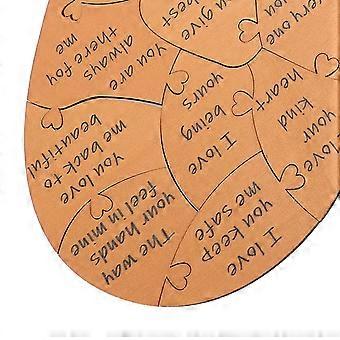 best
you give
every one
you are
always
there foy
me
I love
being
yours
heart
kind
your
I love
you love
me back to
beautiful
The way
your hands
feel in mine
I love
you keep
me safe